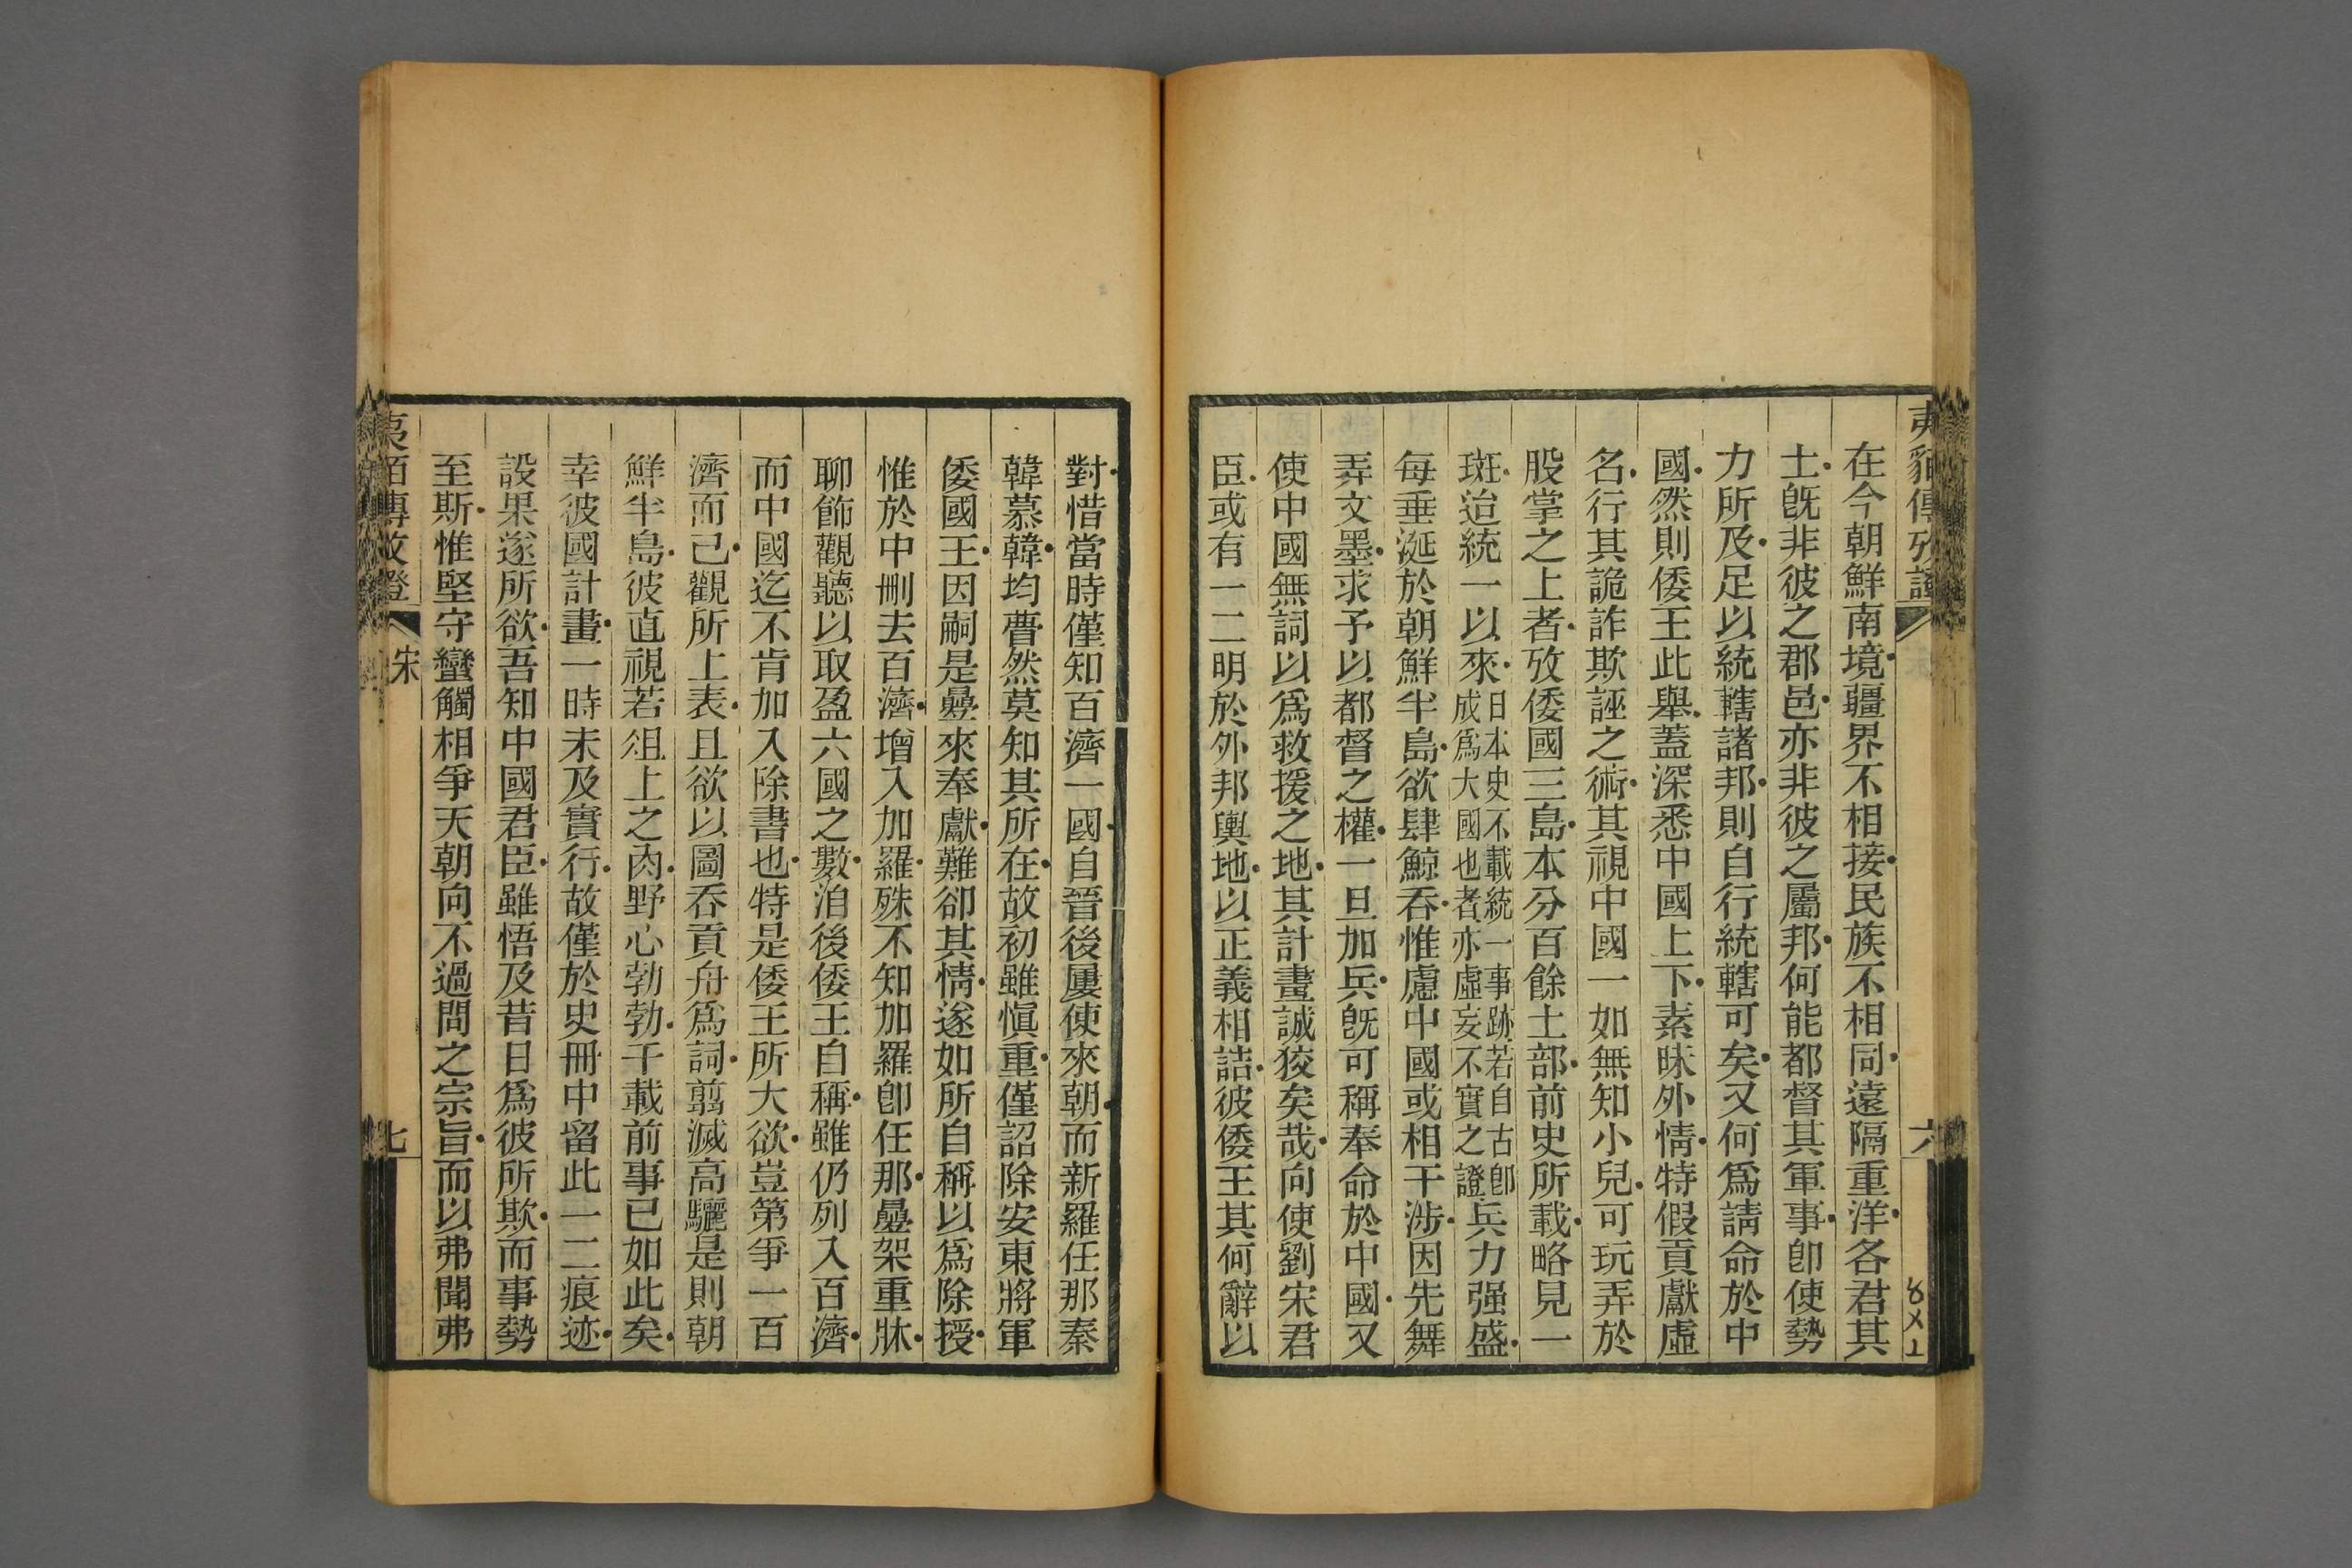 夷貊傳攷證
六
在今朝鮮南境疆界不相接民族不相同遠隔重洋各君其
土旣非彼之郡邑亦非彼之屬邦何能都督其軍事卽使勢
力所及足以統轄諸邦則自行統轄可矣又何爲請命於中
國然則倭王此舉蓋深悉中國上下素昧外情特假貢獻虛
名行其詭詐欺誣之術其視中國一如無知小兒可玩弄於
股掌之上者攷倭國三島本分百餘土部前史所載略見一
斑迨統一以來日本史不載統一事跡若自古卽成爲大國也者亦虛妄不實之證兵力强盛
每垂涎於朝鮮半島欲肆鯨吞惟慮中國或相干涉因先舞
弄文墨求予以都督之權一旦加兵旣可稱奉命於中國又
使中國無詞以爲救援之地其計畫誠狡矣哉向使劉宋君
臣或有一二明於外邦輿地以正義相詰彼倭王其何辭以
對惜當時僅知百濟一國自晉後屢使來朝而新羅任那秦
韓慕韓均瞢然莫知其所在故初雖愼重僅詔除安東將軍
倭國王因嗣是曡來奉獻難卻其情遂如所自稱以爲除授
惟於中刪去百濟增入加羅殊不知加羅卽任那曡架重牀
聊飾觀聽以取盈六國之數洎後倭王自稱雖仍列入百濟
而中國迄不肯加入除書也特是倭王所大欲豈第爭一百
濟而已觀所上表且欲以圖吞貢舟爲詞翦滅高驪是則朝
鮮半島彼直視若俎上之肉野心勃勃千載前事已如此矣
幸彼國計畫一時未及實行故僅於史冊中留此一二痕迹
設果遂所欲吾知中國君臣雖悟及昔日爲彼所欺而事勢
至斯惟堅守蠻觸相爭天朝向不過問之宗旨而以弗聞弗
夷貊傳攷證
宋
七